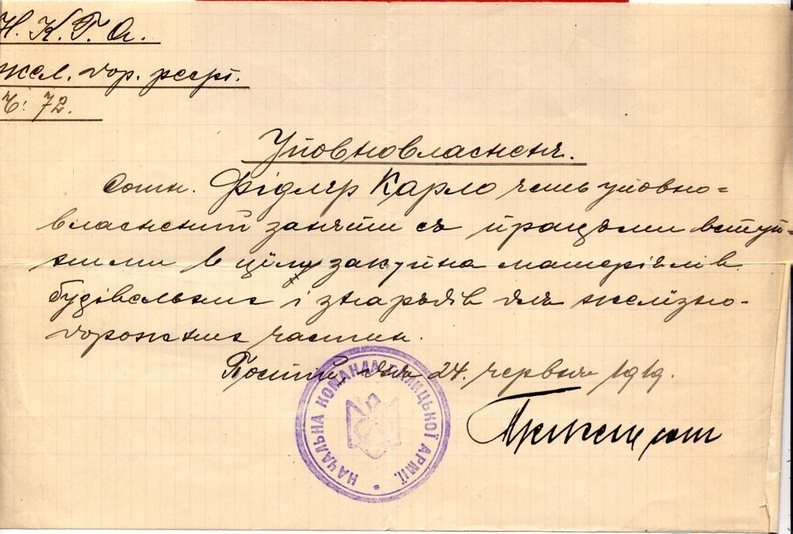 Н. К. Г. А.
жел. дор. реф.
Ч: 72.
Уповновласненє.
Сотн. Фідлєр Карло єсть уповно=
власнений заняти ся працями вступ-
ними в ціли закупна материялів
будівельних і знарядів для желїзно-
дорожних частин.
Постій, дня 24. червня 1919.
НАЧАЛЬНА КОМАНДА ГАЛИЦЬКОЇ АРМІЇ